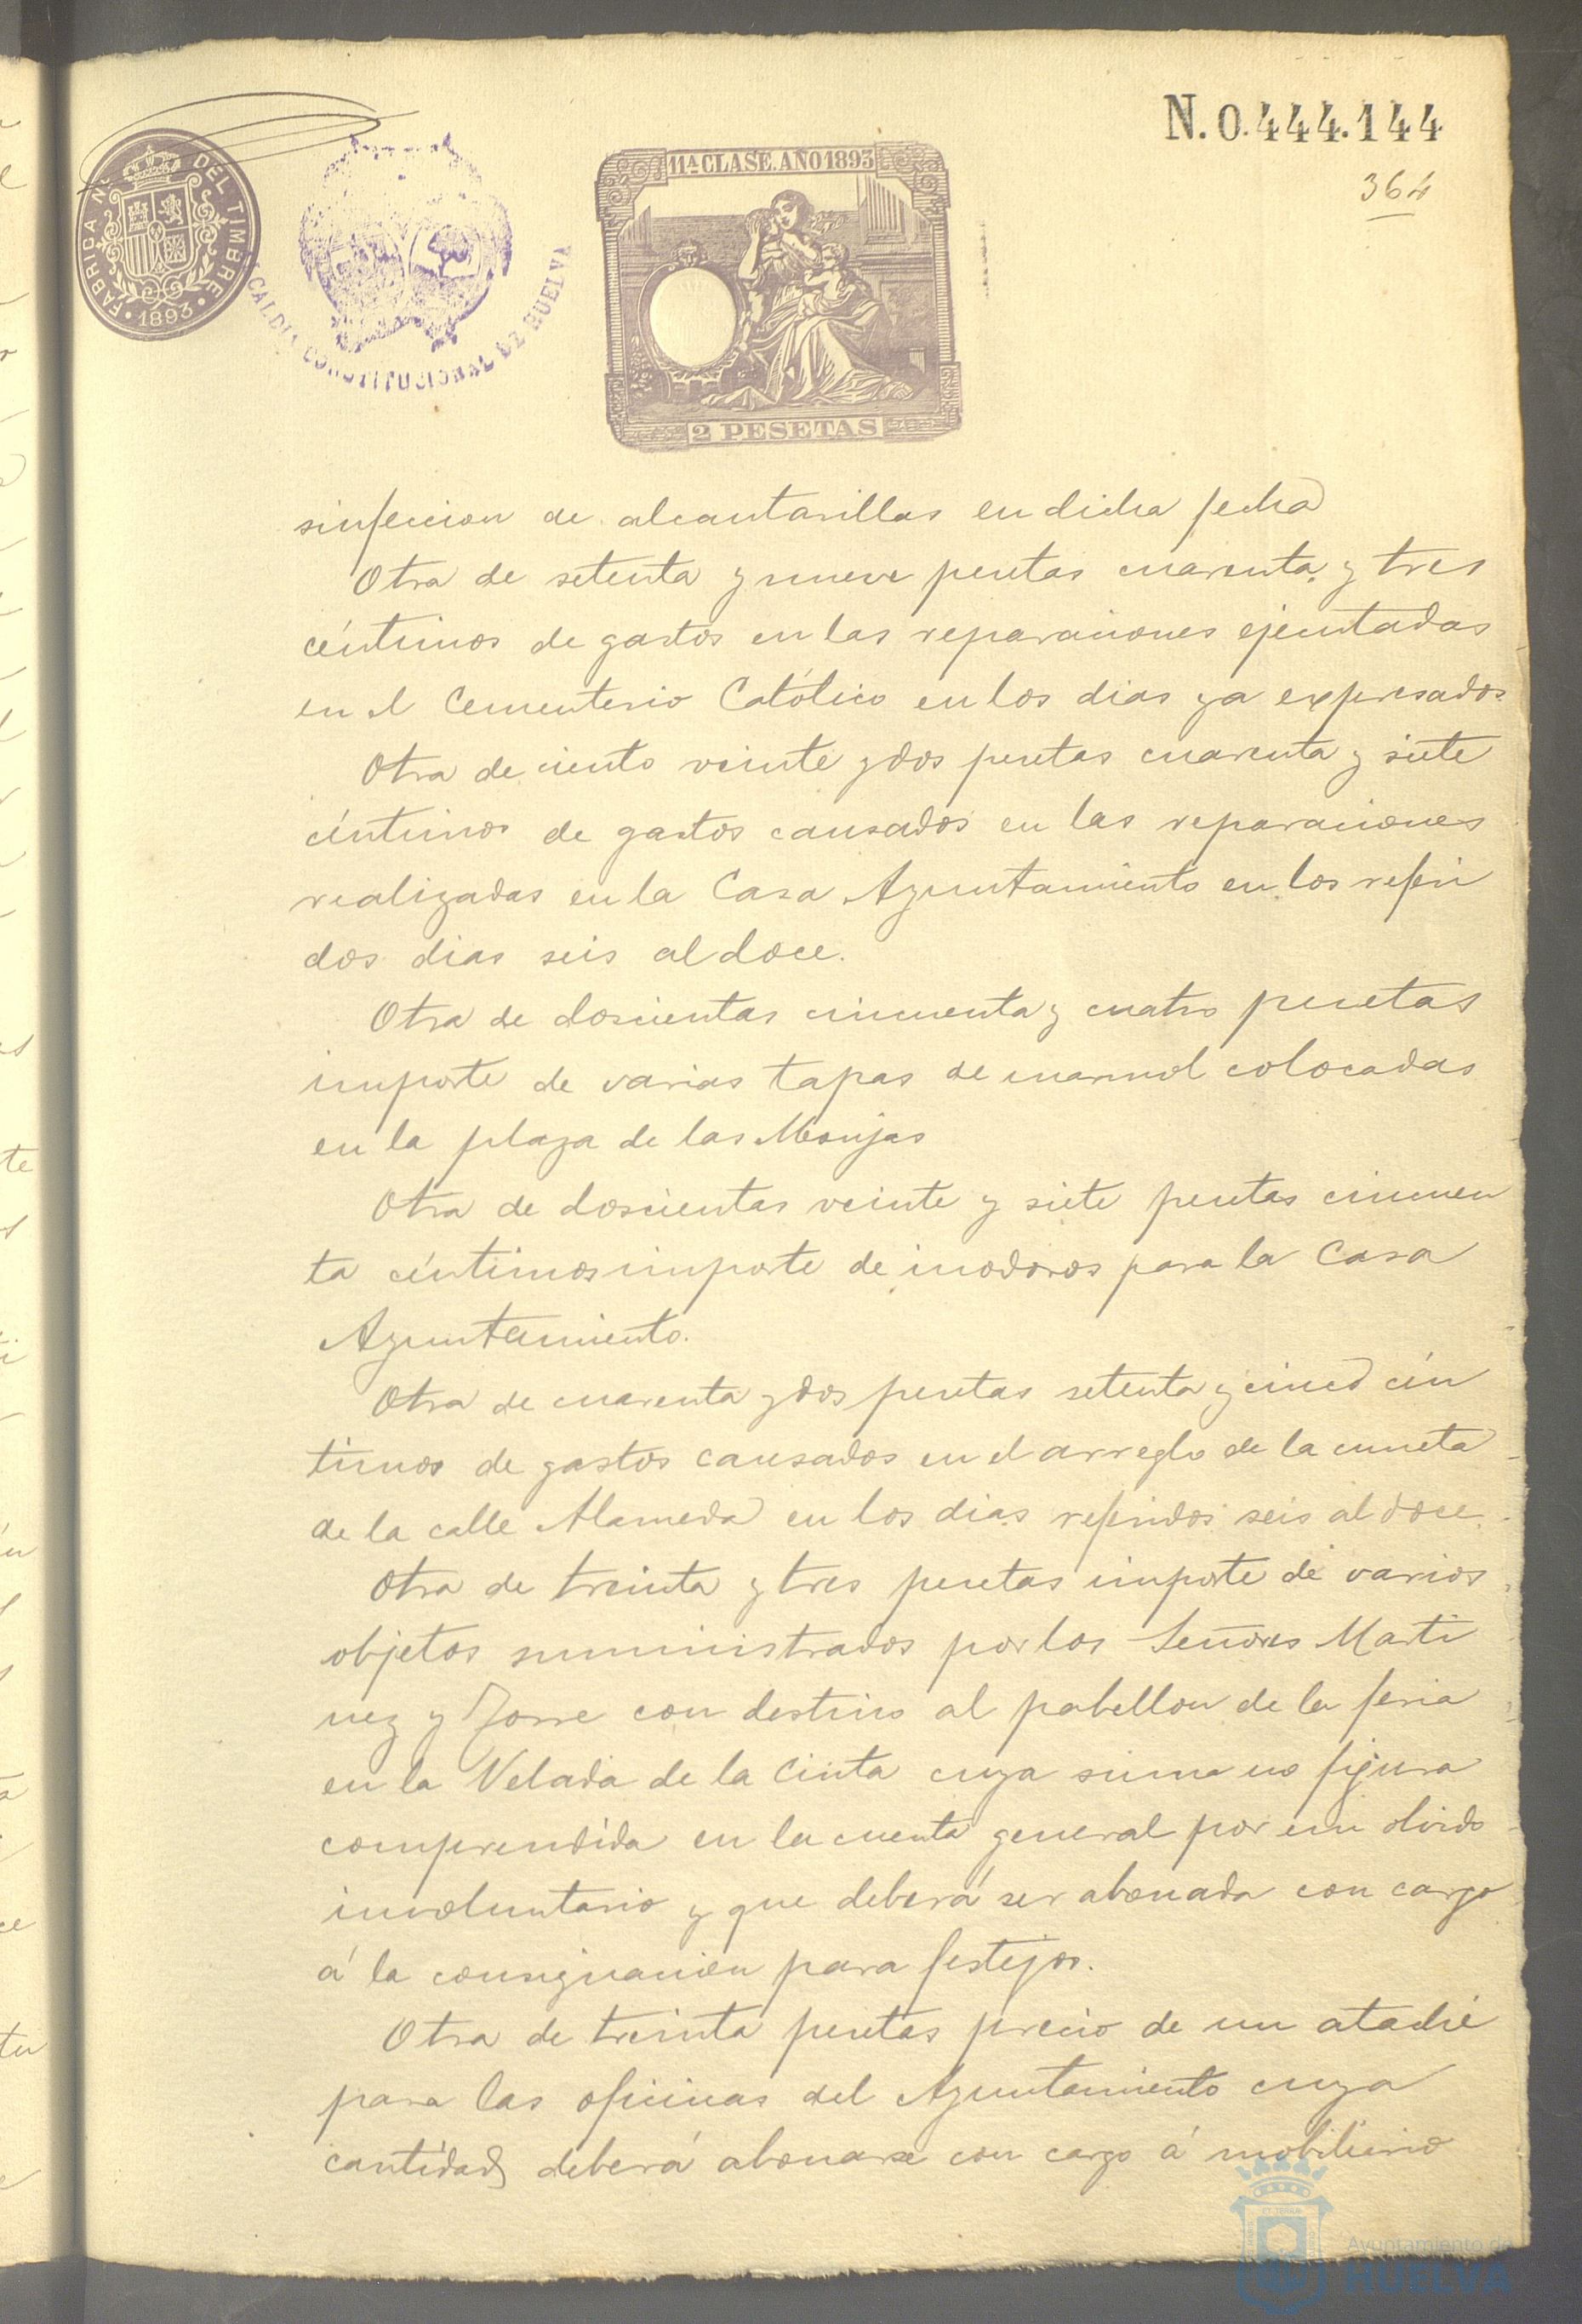 N. 0.444.144
364
FABRICA Nal. DEL TIMBRE
1893
ALCALDIA CONSTITUCIONAL DE HUELVA
11ª CLASE. AÑO 1893
2 PESETAS
sinfeccion de alcantarillas en dicha fecha
Otra de setenta y nueve pesetas cuarenta y tres
céntimos de gastos en las reparaciones ejecutadas
en el Cementerio Católico en los dias ya expresados
Otra de ciento veinte y dos pesetas cuarenta y siete
céntimos de gastos causados en las reparaciones
realizadas en la Casa Ayuntamiento en los referi
dos dias seis al doce.
Otra de doscientas cincuenta y cuatro pesetas
importe de varias tapas de marmol colocadas
en la plaza de las Monjas
Otra de doscientas veinte y siete pesetas cincuen
ta céntimos importe de inodoros para la Casa
Ayuntamiento.
Otra de cuarenta y dos pesetas setenta y cinco cén
timos de gastos causados en el arreglo de la cuneta
de la calle Alameda en los dias referidos seis al doce.
Otra de treinta y tres pesetas importe de varios
objetos suministrados por los Señores Marti
nez y Jorre con destino al pabellon de la feria
en la Velada de la Cinta cuya suma no figura
comprendida en la cuenta general por un olvido
involuntario y que deberá ser abonada con cargo
á la consignacion para festejos.
Otra de treinta pesetas precio de un
para las oficinas del Ayuntamiento cuya
cantidad deberá abonarse con cargo á mobiliario
Ayuntamiento de
HUELVA